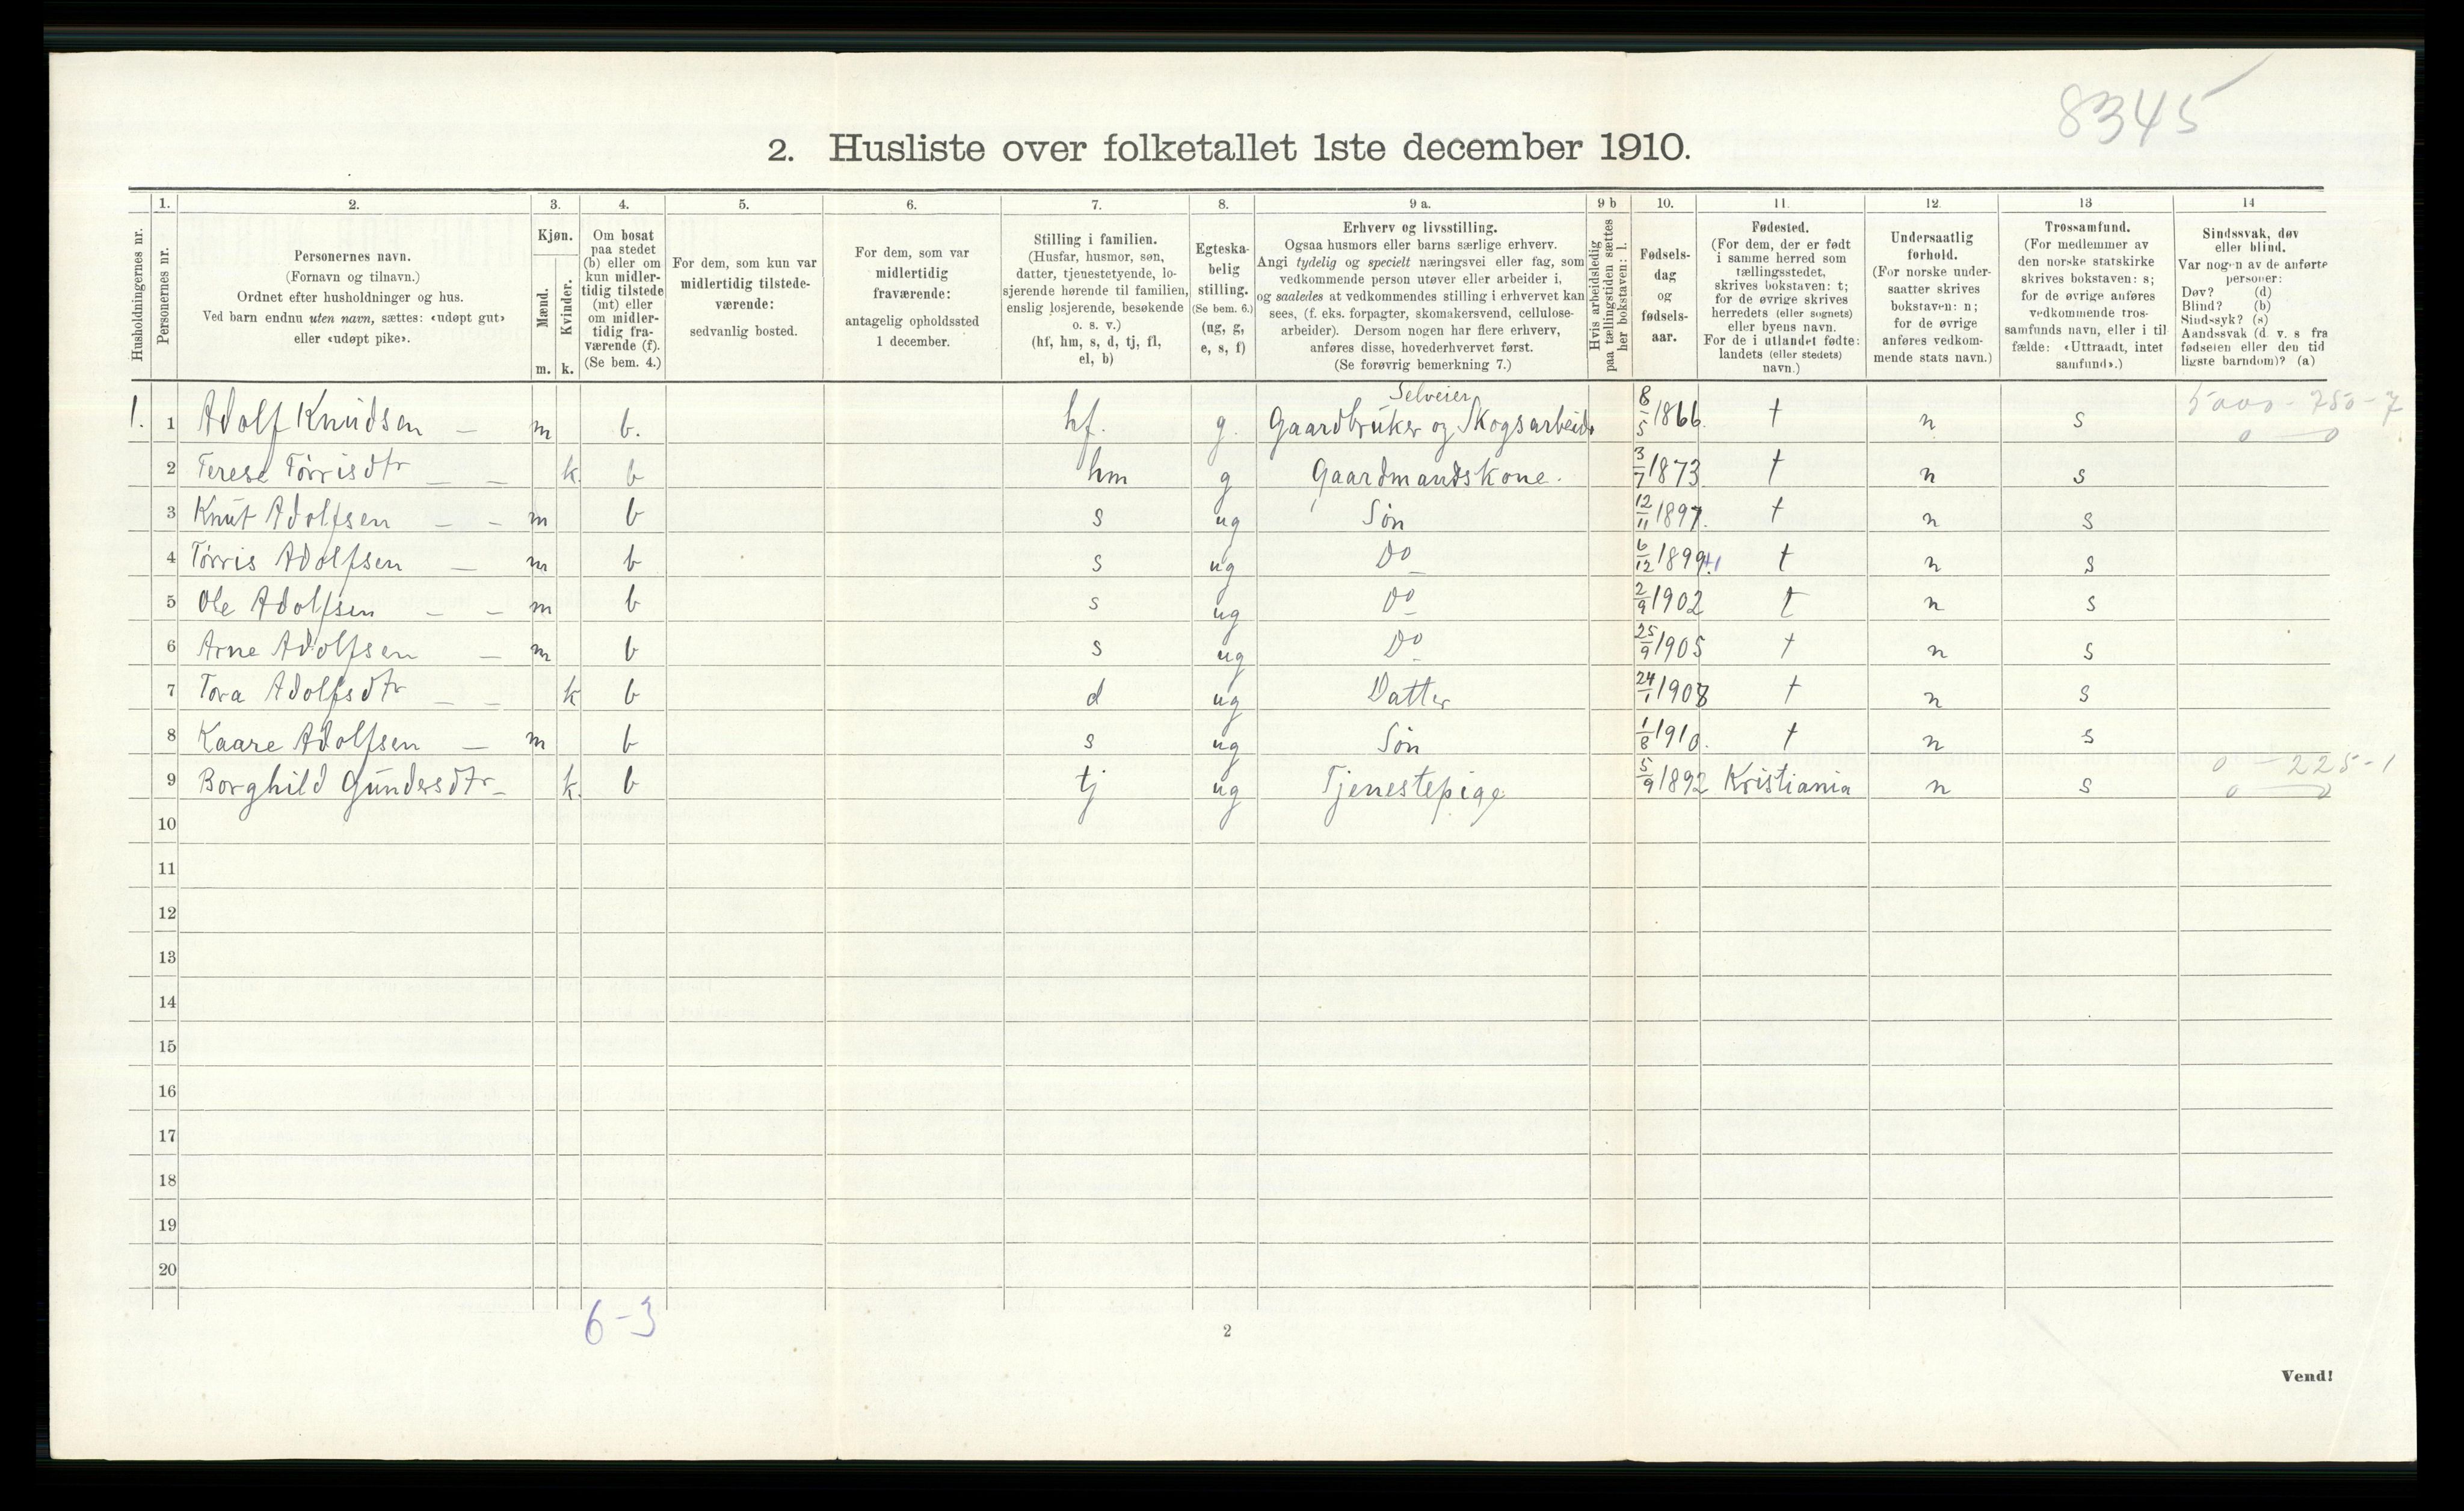 8345
2. Husliste over folketallet 1ste december 1910.
Husholdningernes nr.
1.
Personernes nr.
2.
Personernes navn.
(Fornavn og tilnavn.)
Ordnet efter husholdninger og hus.
Ved barn endnu uten navn, sættes: «udøpt gut»
eller «udøpt pike».
3.
Kjøn.
Mænd.
Kvinder.
m. k.
4.
Om bosat
paa stedet
(b) eller om
kun midler-
tidig tilstede
(mt) eller
om midler-
tidig fra-
værende (f).
(Se bem. 4.)
5.
For dem, som kun var
midlertidig tilstede-
værende:
sedvanlig bosted.
6.
For dem, som var
midlertidig
fraværende:
antagelig opholdssted
1 december.
7.
Stilling i familien.
(Husfar, husmor, søn,
datter, tjenestetyende, lo-
sjerende hørende til familien,
enslig losjerende, besøkende
o. s. v.)
(hf, hm, s, d, tj, fl,
el, b)
8.
Egteska-
belig
stilling.
(Se bem. 6.)
(ug, g,
e, s, f)
9 a.
Erhverv og livsstilling.
Ogsaa husmors eller barns særlige erhverv.
Angi tydelig og specielt næringsvei eller fag, som
vedkommende person utøver eller arbeider i,
og saaledes at vedkommendes stilling i erhvervet kan
sees, (f. eks. forpagter, skomakersvend, cellulose-
arbeider). Dersom nogen har flere erhverv,
anføres disse, hovederhvervet først.
(Se forøvrig bemerkning 7.)
9 b
Hvis arbeidsledig
paa tællingstiden sættes
her bokstaven: l.
10.
Fødsels-
dag
og
fødsels-
aar.
11.
Fødested.
(For dem, der er født
i samme herred som
tællingsstedet,
skrives bokstaven: t;
for de øvrige skrives
herredets (eller sognets)
eller byens navn.
For de i utlandet fødte:
landets (eller stedets)
navn.)
12.
Undersaatlig
forhold.
(For norske under-
saatter skrives
bokstaven: n;
for de øvrige
anføres vedkom-
mende stats navn.)
13
Trossamfund.
(For medlemmer av
den norske statskirke
skrives bokstaven: s;
for de øvrige anføres
vedkommende tros-
samfunds navn, eller i til-
fælde: «Uttraadt, intet
samfund».)
14
Sindssvak, døv
eller blind.
Var nogen av de anførte
personer:
Døv? (d)
Blind? (b)
Sindssyk? (s)
Aandssvak (d. v. s. fra
fødselen eller den tid-
ligste barndom)? (a)
Selveier 5000 - 750 - 7
1. 1 Adolf Knudsen — m b. hf. g. Gaardbruker og Skogsarbeider 8/5 1866. t n s 0 — 0
2 Terese Tørrisdtr — — k. b hm g Gaardmandskone. 3/7 1873 t n s
3 Knut Adolfsen — — m b s ug Søn 12/11 1897. t n s
4 Tørris Adolfsen — m b s ug Do 6/12 1899. t n s
5 Ole Adolfsen — — m b s ug Do 2/9 1902 t n s
6 Arne Adolfsen — m b s ug Do 25/9 1905 t n s
7 Tora Adolfsdtr — — k b d ug Datter 24/1 1908 t n s
8 Kaare Adolfsen — m b s ug Søn 1/8 1910. t n s
0 — 225 - 1
9 Borghild Gundersdtr — k. b tj ug Tjenestepige 5/9 1892 Kristiania n s 0 — 0
10
11
12
13
14
15
16
17
18
19
20
6-3
2
Vend!